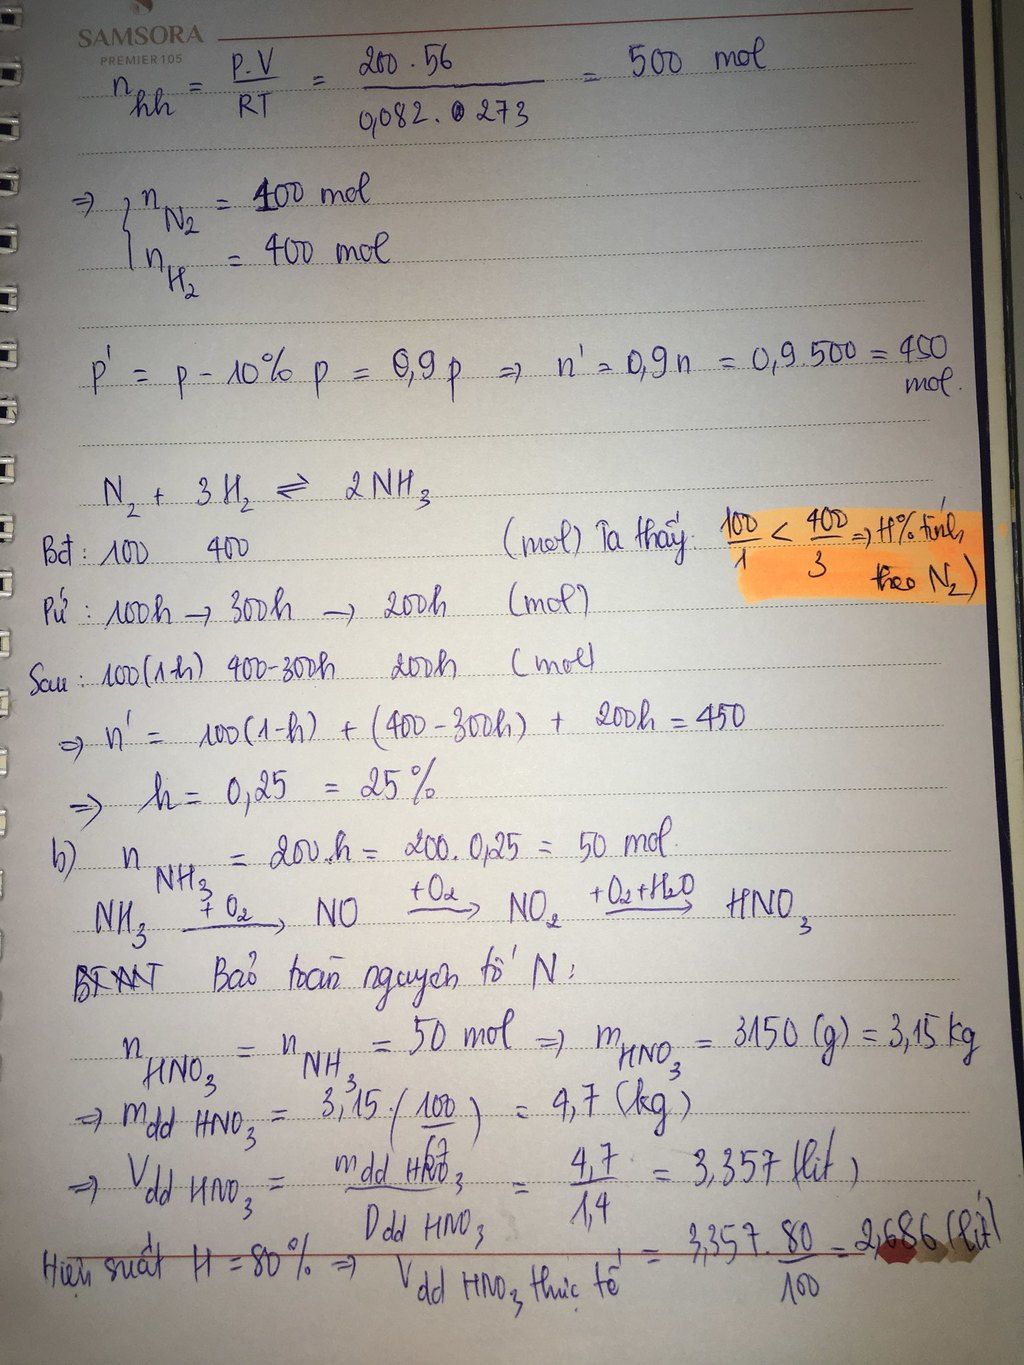 SAMSORA
PREMIER 105
n hh = P.V / RT = 200 . 56 / 0,082 . 273 = 500 mol
=> { n N2 = 100 mol
n H2 = 400 mol
p' = p - 10% p = 0,9p => n' = 0,9n = 0,9.500 = 450 mol.
N2 + 3H2 ⇌ 2NH3
Bđ : 100 400 (mol) Ta thấy: 100/1 < 400/3 => H% tính theo N2)
Pứ : 100h → 300h → 200h (mol)
Sau : 100(1-h) 400-300h 200h (mol)
=> n' = 100(1-h) + (400-300h) + 200h = 450
=> h = 0,25 = 25%
b) n NH3 = 200.h = 200.0,25 = 50 mol.
NH3 +O2 → NO +O2 → NO2 +O2+H2O → HNO3
Bảo toàn nguyên tố N:
n HNO3 = n NH3 = 50 mol => m HNO3 = 3150 (g) = 3,15 kg
=> m dd HNO3 = 3,15.(100/67) = 4,7 (kg)
=> V dd HNO3 = m dd HNO3 / D dd HNO3 = 4,7 / 1,4 = 3,357 (lit)
Hiệu suất H = 80% => V dd HNO3 thực tế = 3,357. 80/100 = 2,686 (lít)